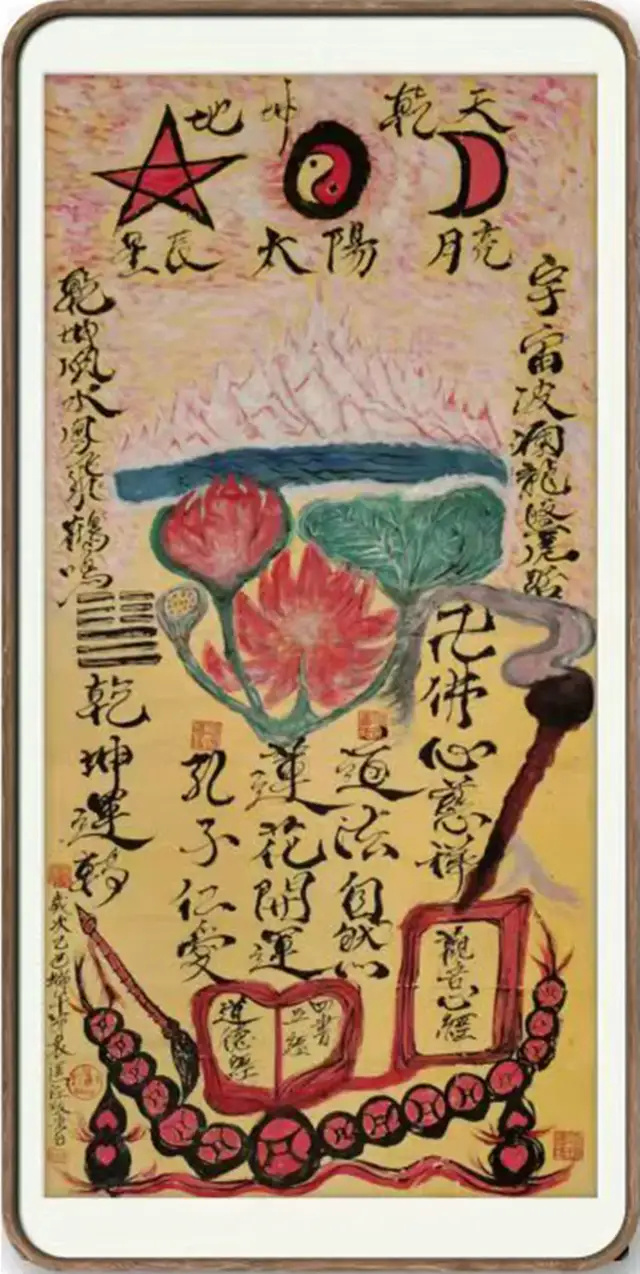 天乾坤地
星辰 太陽 月亮
宇宙波瀾龍盤虎踞
卍佛心慈祥
道法自然
蓮花開運
孔子仁愛
乾坤風水鳳飛鶴鳴
乾坤運轉
觀音心經
四書
五經
道德經
歲次乙巳